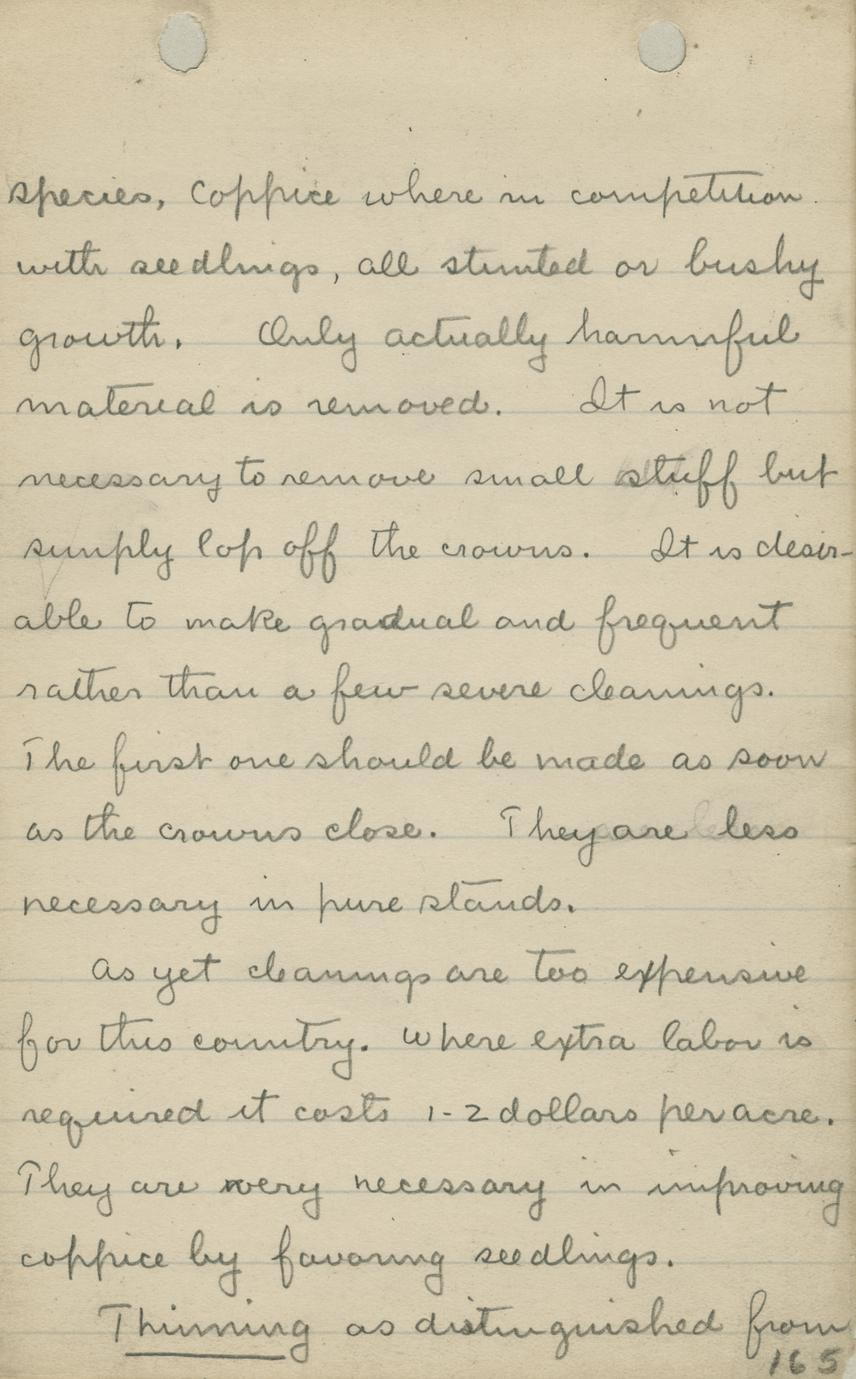 species, Coppice where in competition
with seedlings, all stunted or bushy
growth. Only actually harmful
material is removed. It is not
necessary to remove small stuff but
simply lop off the crowns. It is desir-
able to make gradual and frequent
rather than a few severe cleanings.
The first one should be made as soon
as the crowns close. They are less
necessary in pure stands.
As yet cleanings are too expensive
for this country. Where extra labor is
required it costs 1-2 dollars per acre.
They are very necessary in improving
coppice by favoring seedlings.
Thinning as distinguished from
165